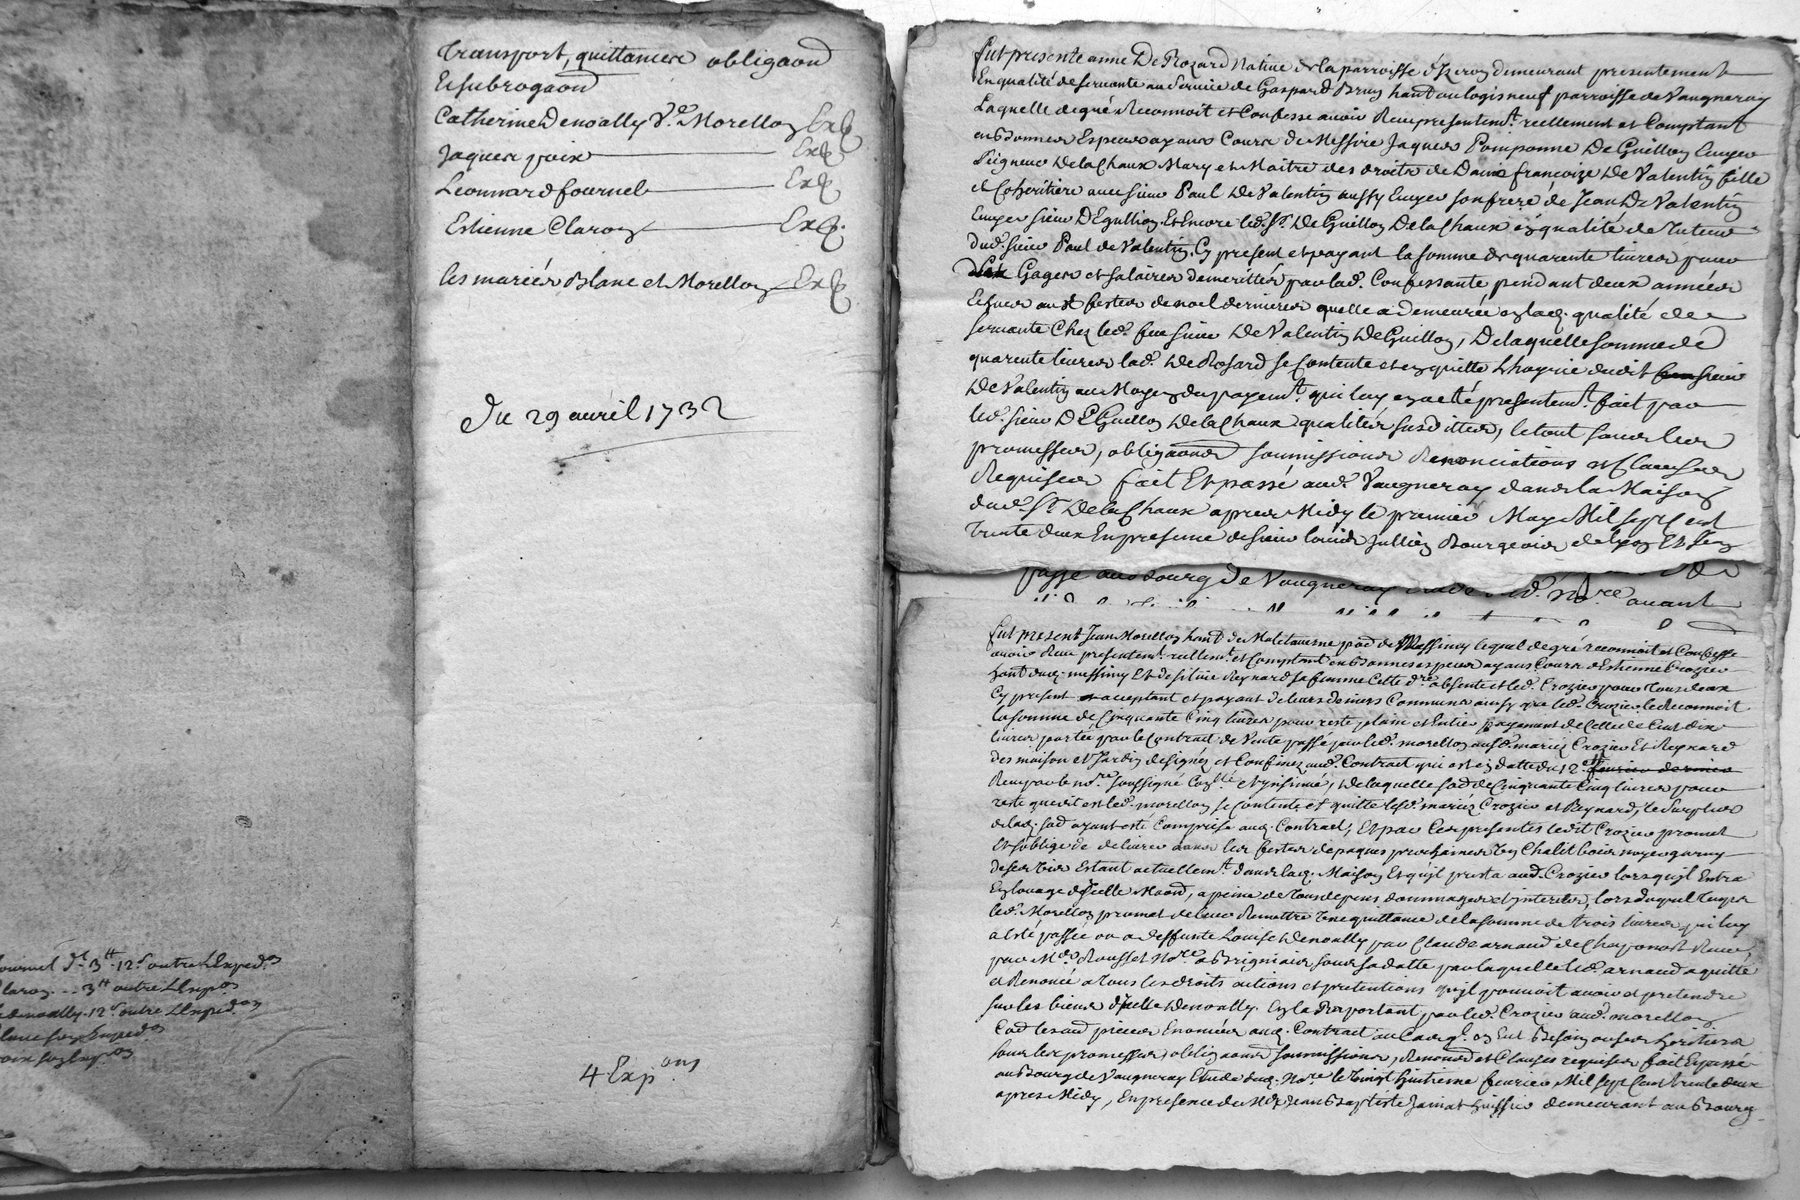 Transport, quittances obligaõn
Et subrogaõn
Catherine Denoally V.e Morellon Exp
Jaques poix Exp
Leonnard fournel Exp
Estienne Claron Exp.
les mariés Blanc et Morellon Exp
Du 29 avril 1732
4 Exp.ons
3tt 12s outre L'Exped.on
3tt outre L'Exp.on
denoally 12s outre L'Exped.on
fut presente anne De Rozard Native de la parroisse d'Izeron demeurant presentement
En qualité de servante au service de Gaspard Brun hant au logis neuf parroisse de Vaugneray
Laquelle de gré Reconnoit et Confesse avoir Receu presentemt. reellement et Comptant
en bonnes Especes ayans Cours de Messire Jaques Pomponne De Guillon Ecuyer
Seigneur De la Chaux Mary et Maitre des droits de Dame françoize De Valentin fille
et Coheritiere avec sieur Paul De Valentin aussy Ecuyer son frere de Jean De Valentin
Ecuyer sieur D'Eguillion Et Encore led. Sr. De Guillon De la Chaux en qualité de Tuteur
dud. sieur Paul de Valentin Cy present et payant la somme de quarente livres pour
Gages et salaires demerittés par lad. Confessante pendant deux années
Echues aux festes de noel dernieres quelle a demeurée en lad. qualité de
servante Chez led. feu sieur De Valentin De Guillon, De laquelle somme de
quarente livres lad. De Rosard se Contente et en quitte L'hoyrie dudit feu sieur
De Valentin au Moyen du payemt. qui luy en a eté presentemt. fait par
led. sieur De Guillon De la Chaux qualités susdittes, le tout sous les
promesses, obligaõns soumissions Renonciations et Clauses
Requises fait Et passé aud. Vaugneray dans la Maison
dud. Sr. De la Chaux apres Midy le premier May Mil sept Cent
Trente deux En presence de sieur Louis Jullien Bourgeois de Lyon Et
passé au bourg de Vaugneray Etude dud. Nore. avant
fut present Jean Morellon hant. de Malataverne pãd de Messimy lequel de gré reconnoit et Confesse
avoir Receu presentemt. reellemt. et Comptant en bonnes especes ayans Cours d'Estienne Crozier
hant dud. messimy Et de Reynard sa femme Cette dre. absente et led. Crozier pour Tous deux
Cy present acceptant et payant de leurs deniers Communs ainsy que led. Crozier le Reconnoit
la somme de Cinquante Cinq livres pour reste, plain et Entier payement de Celle de Cent dix
livres portée par le Contrat de Vente passé par led. morellon ausd. mariés Crozier Et Reynard
des maison et Jardin designés et Confinés aud. Contract qui est en datte du 12e. fevrier dernier
Receu par le nore. soussigné Conlé et insinué, De laquelle sõd de Cinquante Cinq livres pour
reste que dit est led. morellon se contente et quitte lesd. mariés Crozier et Reynard, le surplus
de lad. sõd ayant esté Comprise aud. Contract, Et par Ces presentes ledit Crozier promet
Et s'oblige de delivrer dans les festes de paques prochaines un Chalit bois noyer garny
de ses Estant actuellemt. dans lad. Maison Et qu'il presta aud. Crozier lorsqu'il Entra
En louage d'icelle Maõn, a peine de Tous depens dommages et interets, lors duquel Temps
led. Morellon promet de leur Remettre Une quittance de la somme de trois livres, qui luy
a eté passée ou a deffunte Louise Denoally par Claude arnaud de Chaponost Receue,
par Me. Rousset Nore. a Brignais sous sa datte par laquelle led. arnaud a quitté
et Renoncé a Tous les droits actions et pretentions qu'il pouvoit avoir et pretendre
sur les biens d'icelle Denoally. En la Rapportant par led. Crozier aud. morellon
sous les promesses, obligaõns soumissions, Renonõns et Clauses requises fait Et passé
au Bourg de Vaugneray Etude dud. Nore. le Vingt huitieme fevrier Mil sept Cent trente deux
apres Midy, En presence de Me. Jean Baptiste Jamat huissier demeurant au Bourg